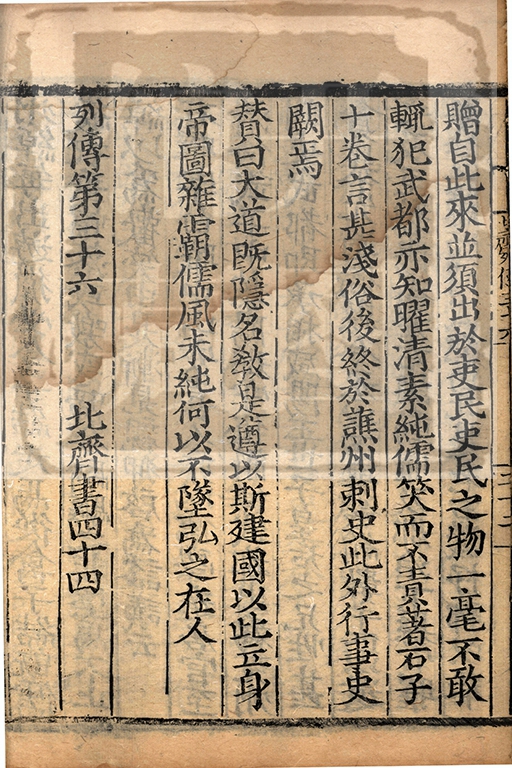 贈自此來並須出於吏民吏民之物一毫不敢
輒犯武都亦知曜清素純儒笑而不責著石子
十卷言甚淺俗後終於譙州刺史此外行事史
闕焉
贊曰大道既隱名教是遵以斯建國以此立身
帝圖雜霸儒風未純何以不墜弘之在人
列傳第三十六 北齊書四十四